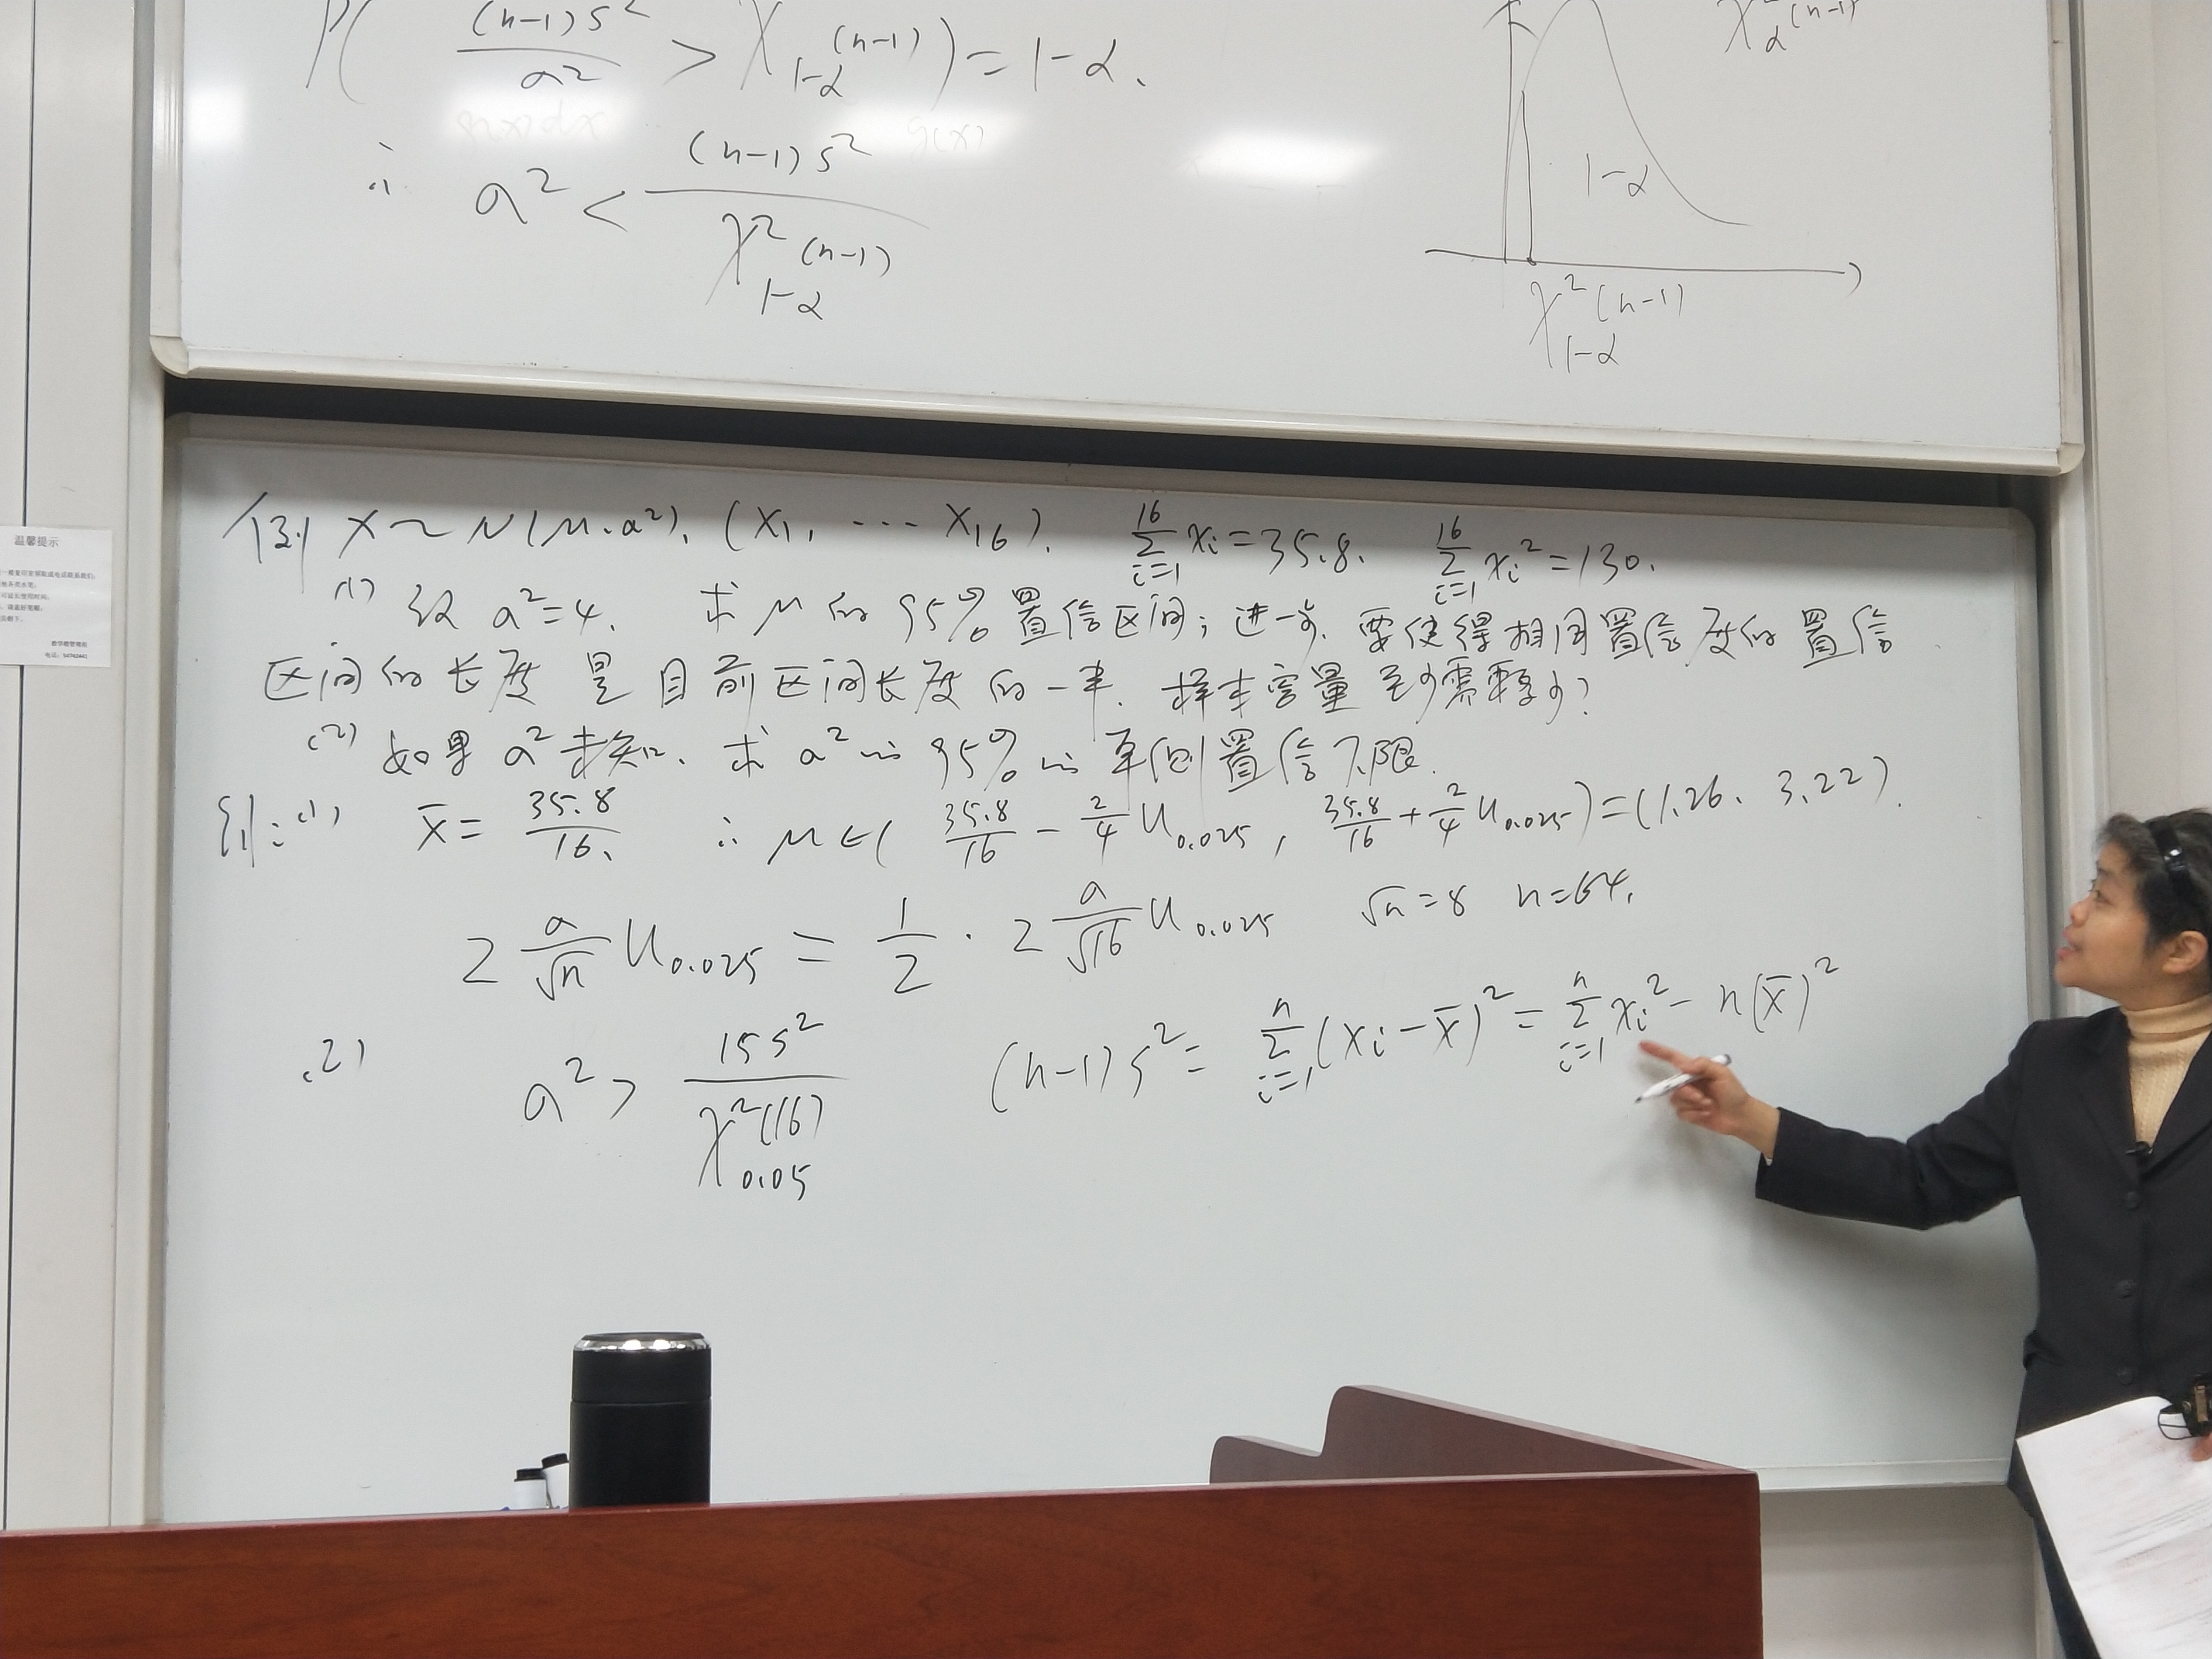 P( (n-1)S² / σ² > χ²₁₋α(n-1) ) = 1-α.
χ²α(n-1)
∴ σ² < (n-1)S² / χ²₁₋α(n-1)
1-α
χ²₁₋α(n-1)
例 X~N(μ.σ²). (X₁, … X₁₆). ∑ᵢ₌₁¹⁶ xᵢ=35.8. ∑ᵢ₌₁¹⁶ xᵢ²=130.
(1) 设 σ²=4. 求 μ 的 95% 置信区间; 进一步. 要使得相同置信度的置信
区间的长度 是 目前区间长度 的一半. 样本容量 至少需要多少?
(2) 如果 σ² 未知. 求 σ² 的 95% 的 单侧置信下限.
(1) x̄ = 35.8/16. ∴ μ∈( 35.8/16 - 2/4 U₀.₀₂₅, 35.8/16 + 2/4 U₀.₀₂₅ ) = (1.26. 3.22).
2 σ/√n U₀.₀₂₅ = 1/2 · 2 σ/√16 U₀.₀₂₅ √n=8 n=64.
(2) σ² > 15S² / χ²₀.₀₅(16) (n-1)S² = ∑ᵢ₌₁ⁿ (xᵢ-x̄)² = ∑ᵢ₌₁ⁿ xᵢ² - n(x̄)²
温馨提示